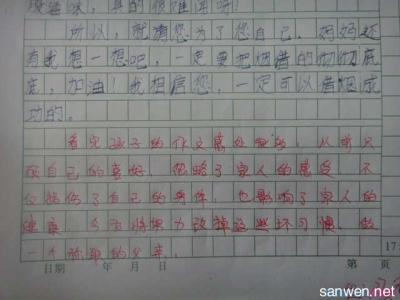 疫滋味，真的很难闻呀！
所以，就请您为了您自己，妈妈还
有我想一想吧，一定要把烟借的彻彻底
底，加油！我相信您，一定可以借烟成
功的。
看完孩子的作文感处颇多，从前只
顾自己的喜好，忽略了家人的感受，不
仅损伤了自己的身体，也影响了家人的
健康，今后将努力改掉这些坏习惯，做
一个称职的父亲。
日期 年 月 日 第 页
17
sanwen.net